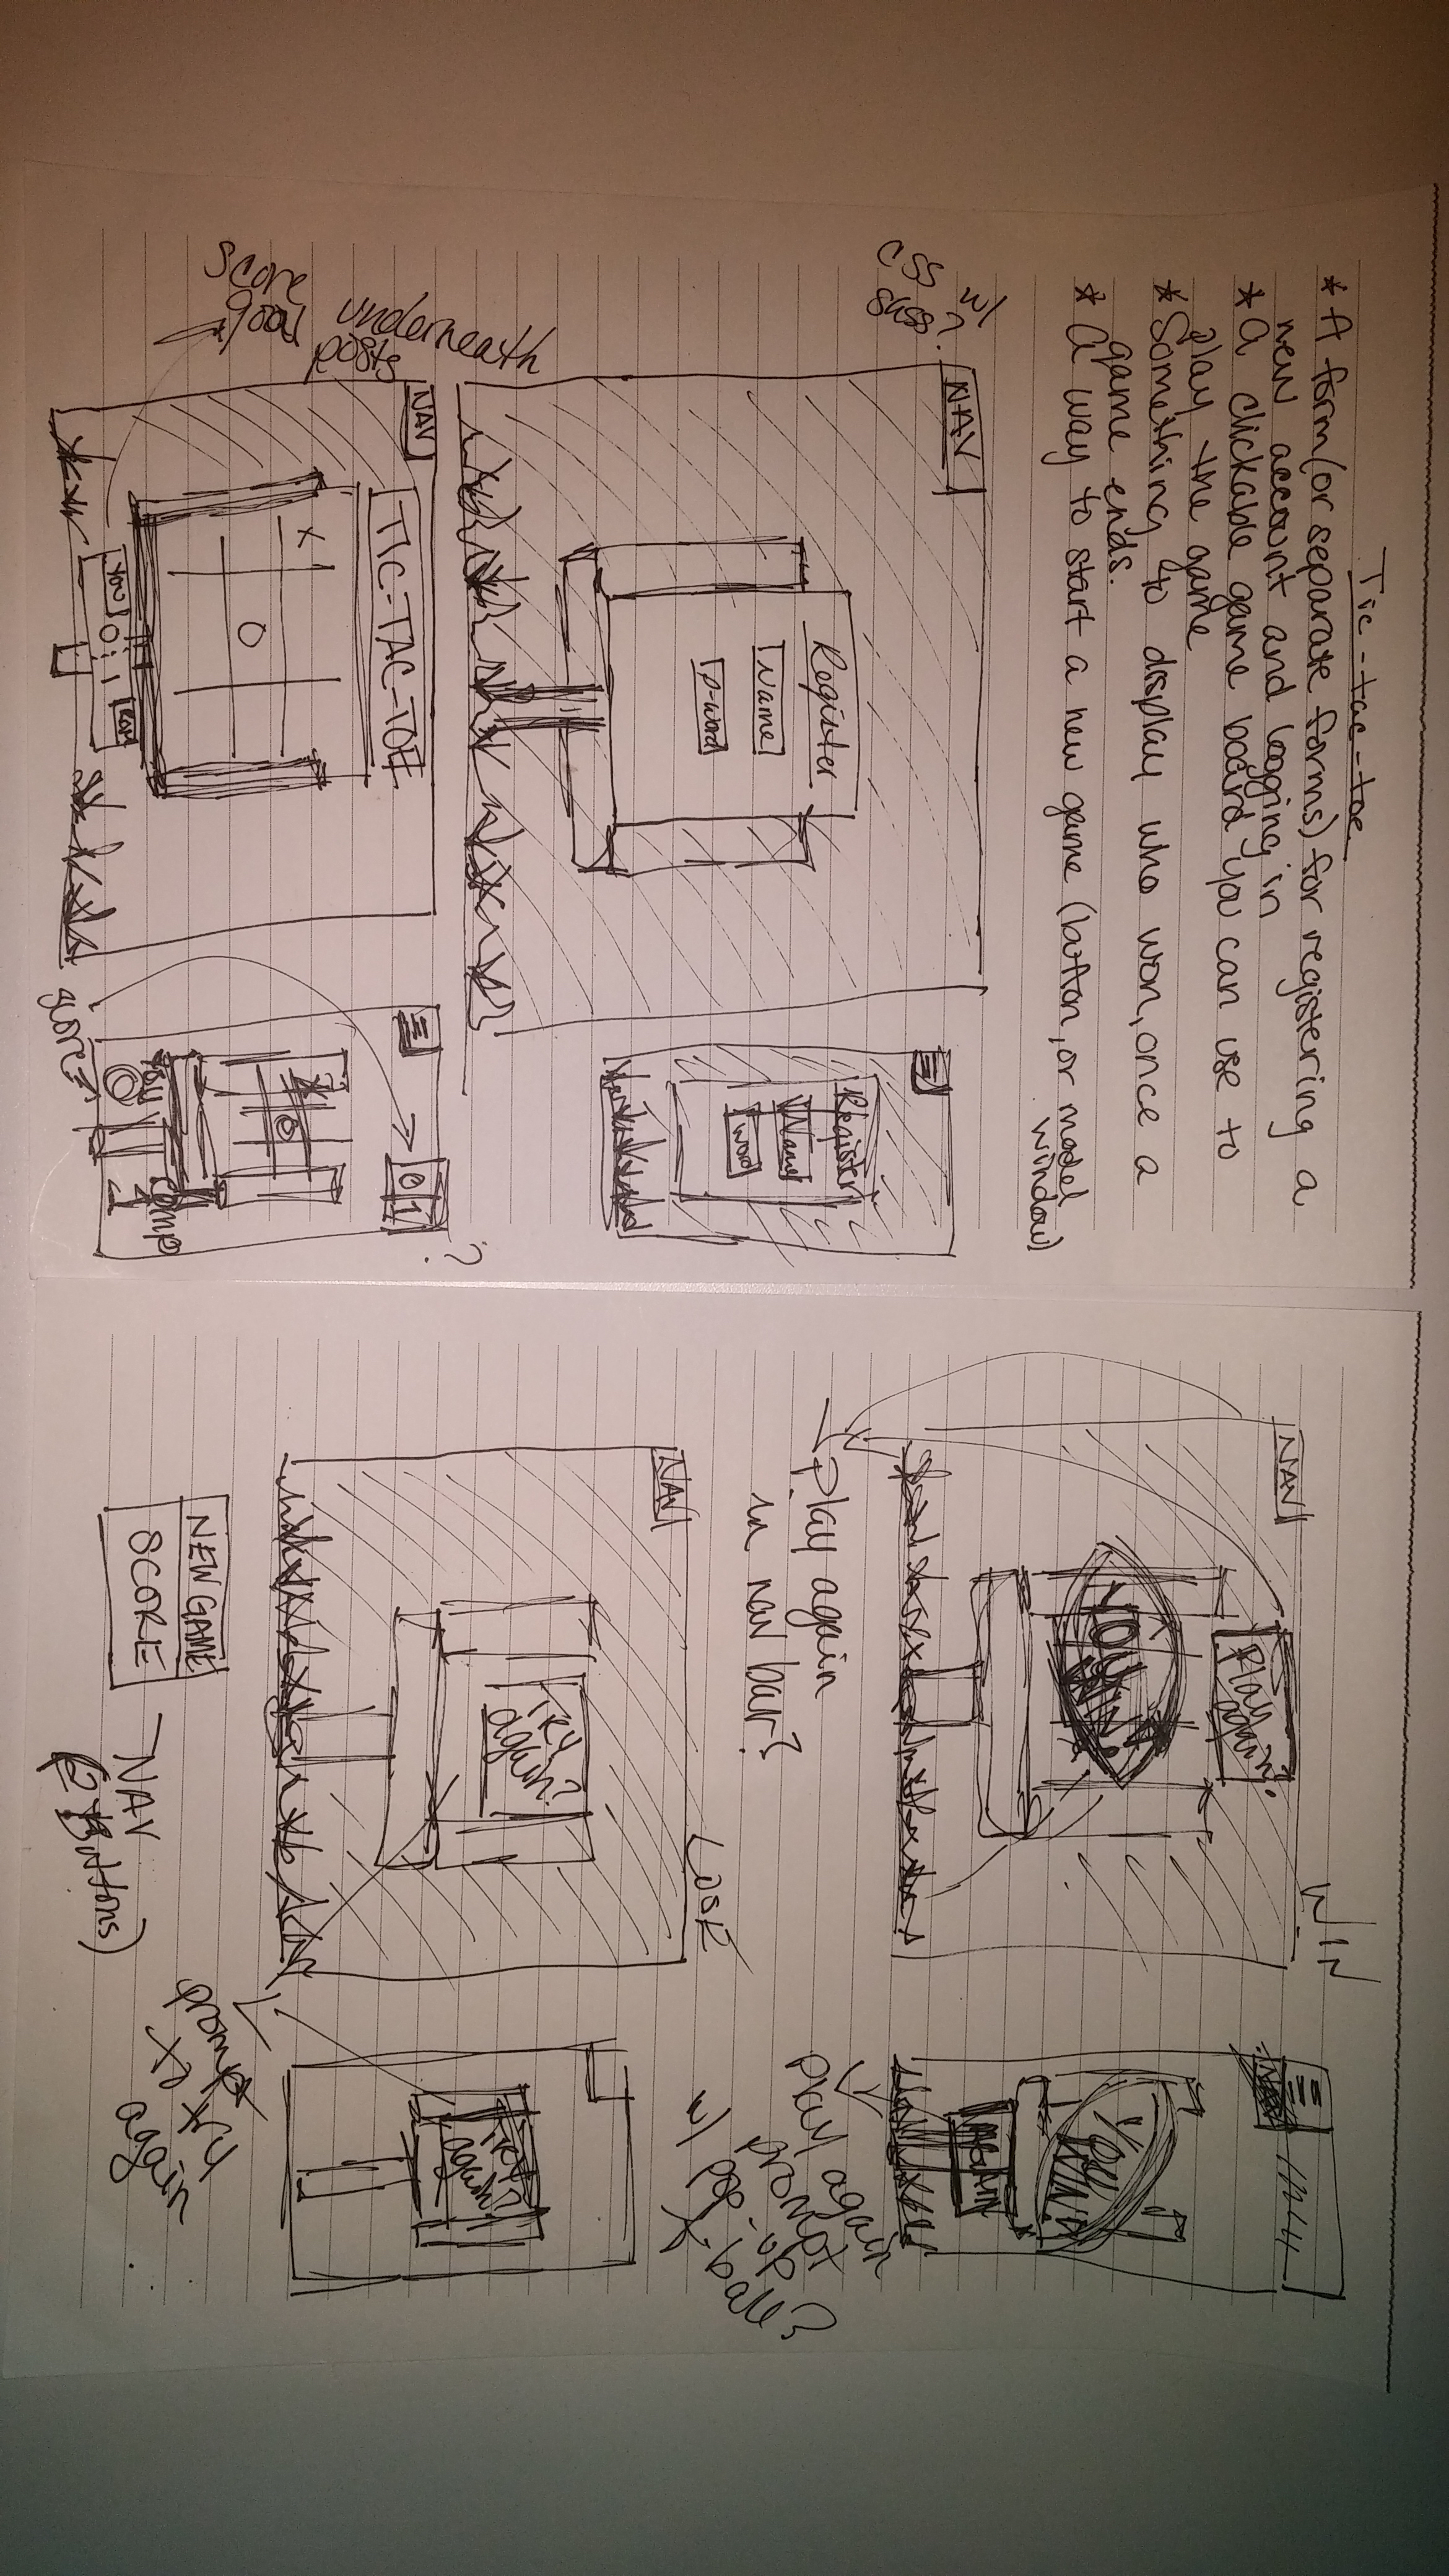 Tic-tac-toe
* A form (or separate forms) for registering a
new account and logging in
* A clickable game board you can use to
play the game
* Something to display who won, once a
game ends.
* A way to start a new game (button, or model
window)
CSS w/
sass?
NAV
Register
Name
p-word
Register
Name
word
Score
underneath
goal posts
NAV
TIC-TAC-TOE
X
O
YOU 0:1 COM
0 1
?
X
O
YOU COMP
1
score?
WIN
NAV
Play
again?
YOU
WIN!
→ Play again
in nav bar?
YOU
WIN!
AGAIN
play again
prompt
w/ pop-up
f. ball?
LOSE
NAV
TRY
again?
TRY
again?
prompt
to try
again
NEW GAME
SCORE
NAV
(2 Buttons)